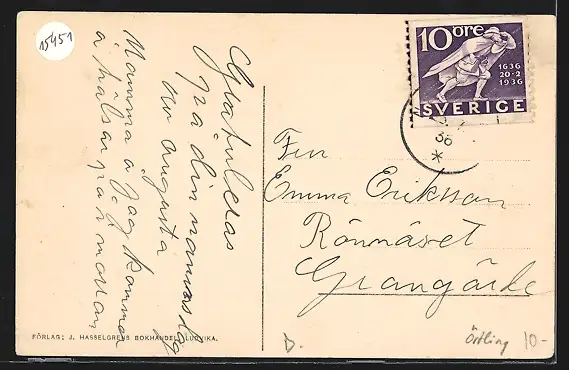 15451
Gratuleras
på din namnsdag
av augusta
Mamma å jag komma
å hälsar på morran
FÖRLAG: J. HASSELGRENS BOKHANDEL, LUDVIKA.
10 öre
1636
20-2
1936
SVERIGE
36
*
Fru
Emma Eriksson
Rönnäset
Grangärde
Örtling 10-